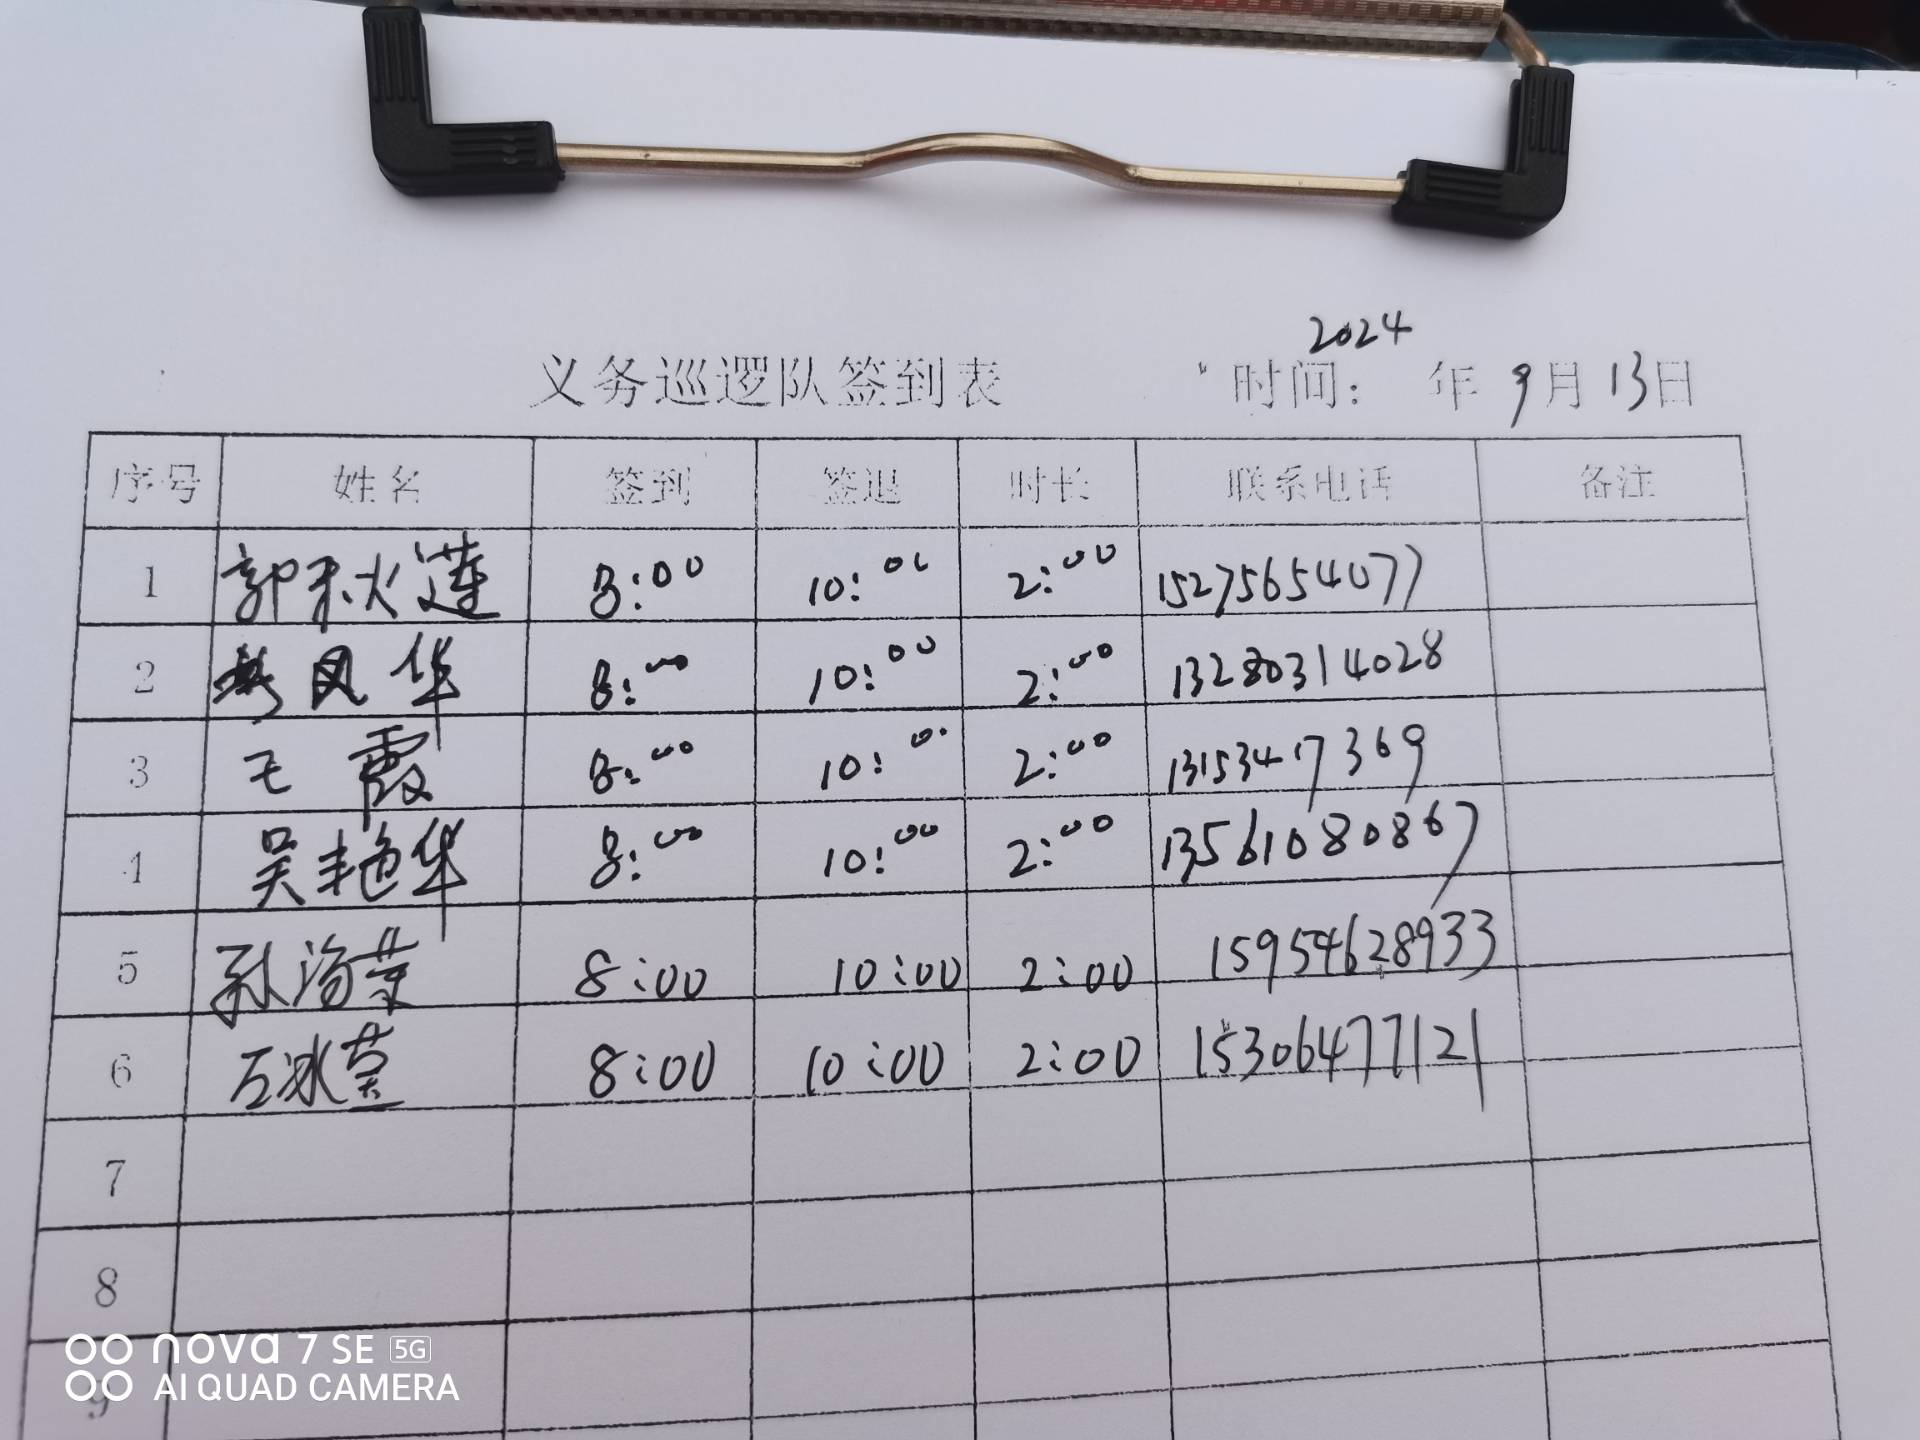 2024
义务巡逻队签到表 时间： 年 9月13日
序号 姓名 签到 签退 时长 联系电话 备注
1 郭秋莲 8:00 10:00 2:00 15275654077
2 凤华 8:00 10:00 2:00 13280314028
3 王霞 8:00 10:00 2:00 13153417369
4 吴艳华 8:00 10:00 2:00 13561080867
5 孙海荣 8:00 10:00 2:00 15954628933
6 石冰 8:00 10:00 2:00 15306477121
7
8
9
nova 7 SE 5G
AI QUAD CAMERA